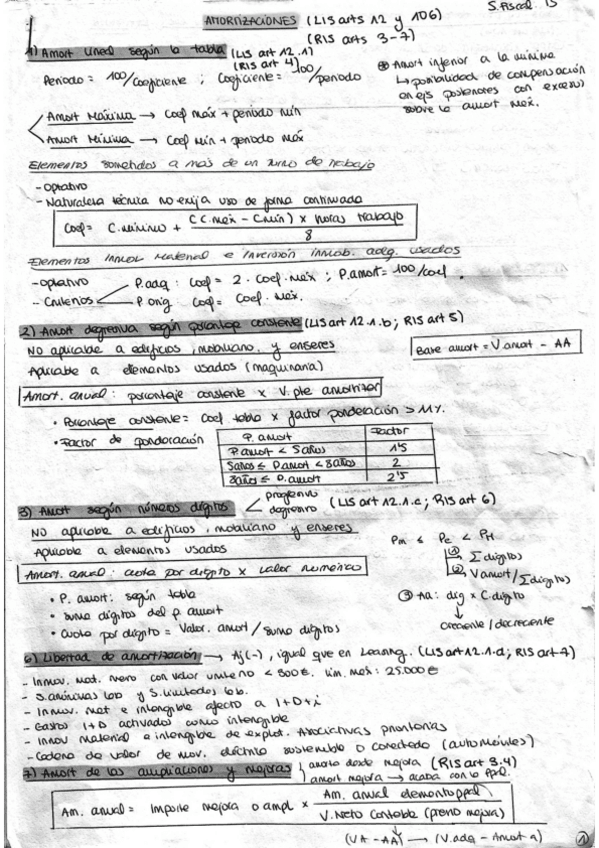 S. Fiscal 15
AMORTIZACIONES (LIS arts 12 y 106)
(RIS arts 3-7)
1) Amort lineal según la tabla (LIS art 12.1)
(RIS art 4)
Periodo = 100/coeficiente ; Coeficiente = 100/periodo
⊛ Amort inferior a la mínima
↳ posibilidad de compensación
en ejs posteriores con excesos
sobre la amort max.
Amort Máxima → Coef máx + periodo mín
Amort Mínima → Coef Mín + periodo máx
Elementos sometidos a más de un turno de trabajo
- Optativo
- Naturaleza técnica no exija uso de forma continuada
Coef = C.mínimo + (C.max - Cmín) x horas trabajo / 8
Elementos inmov. material e inversión inmob. adq. usados
- Optativo
- Criterios P.adq : Coef = 2 · Coef. Max ; P.amort = 100/coef.
P.orig Coef = Coef. Max.
2) Amort degresiva según porcentaje constante (LIS art 12.1.b ; RIS art 5)
NO aplicable a edificios, mobiliario, y enseres
Aplicable a elementos usados (maquinaria)
Base amort = V.amort - AA
Amort. anual : porcentaje constante x V. pte amortizar
• Porcentaje constante = Coef tabla x factor ponderación > 11%.
• Factor de ponderación
P. amort Factor
P.amort < 5años 1'5
5años ≤ P.amort < 8años 2
8años ≤ P.amort 2'5
3) Amort según números dígitos progresivo (LIS art 12.1.c ; RIS art 6)
degresivo
NO aplicable a edificios, mobiliario y enseres
Aplicable a elementos usados
Amort. anual : cuota por dígito x valor numérico
• P. amort : según tabla
• suma dígitos del p. amort
• Cuota por dígito = Valor. amort / suma dígitos
Pm ≤ Pe ≤ PM
① Σ dígitos
② V amort / Σ dígitos
③ AA : díg x C.dígito
creciente / decreciente
6) Libertad de amortización → Aj(-), igual que en Leasing. (LIS art 12.1.d ; RIS art 7)
- Inmov. mat. nuevo con valor unitario < 300€. lím. max : 25.000€
- S.anónimas lab y S.limitadas lab.
- Inmov. mat e intangible afecto a I+D+i
- Gastos I+D activados como intangible
- Inmov material e intangible de explot. Asociativas prioritarias
- Cadena de valor de mov. eléctrica sostenible o conectado (automóviles)
7) Amort de las ampliaciones y mejoras amorto desde mejora (RIS art 3.4)
amort mejora → acaba con la ppal.
Am. anual = Importe mejora o ampl x Am. anual elemento ppal / V. Neto Contable (previo mejora)
(VA - AA) → (V.adq - Amort a)
1